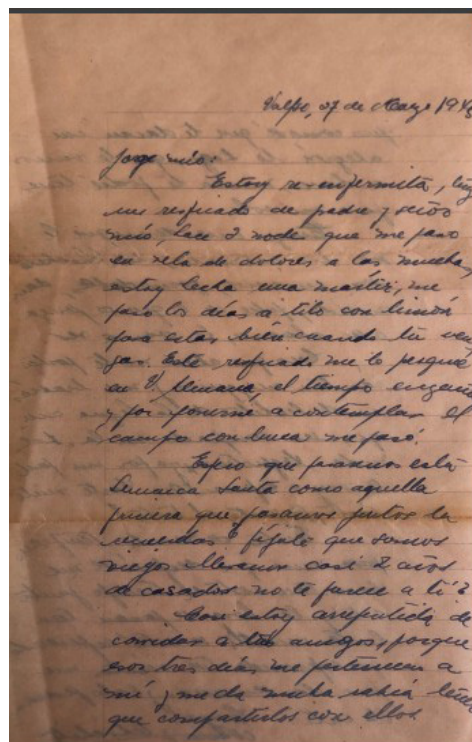 Valpo, 27 de Marzo 191
Jorge mío:
Estoy re-enfermita, 
un resfriado de padre y señor
mío, hace 2 noches que me paso
en vela de dolores a las muelas,
estoy hecha una mártir, me
paso los días a tilo con limón
para estar bien cuando tú ven
gas. Este resfriado me lo pesqué
en V. Alemana, el tiempo
y por ponerme a contemplar el
campo con luna me pasó.
Espero que pasaremos esta
Semana Santa como aquella
primera que pasamos juntos la
recuerdas? fíjate que somos
viejos llevamos casi 2 años
de casados no te parece a ti?
Casi estoy arrepentida de
convidar a tus amigos, porque
esos tres días me pertenecen a
mí y me da mucha rabia
que compartirlos con ellos